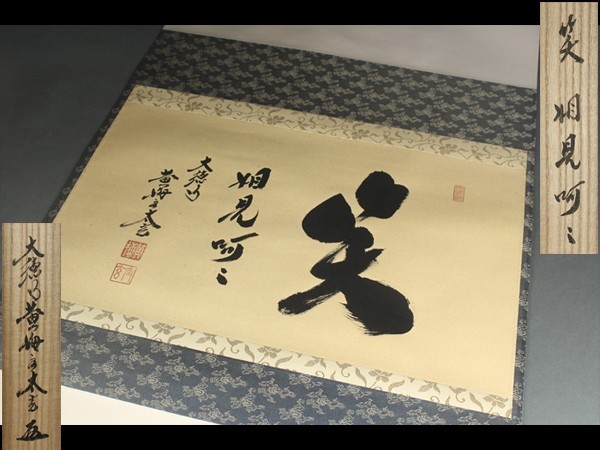 笑
相見呵々
大徳寺
黄梅主太玄
笑 相見呵々
大徳寺黄梅主太玄